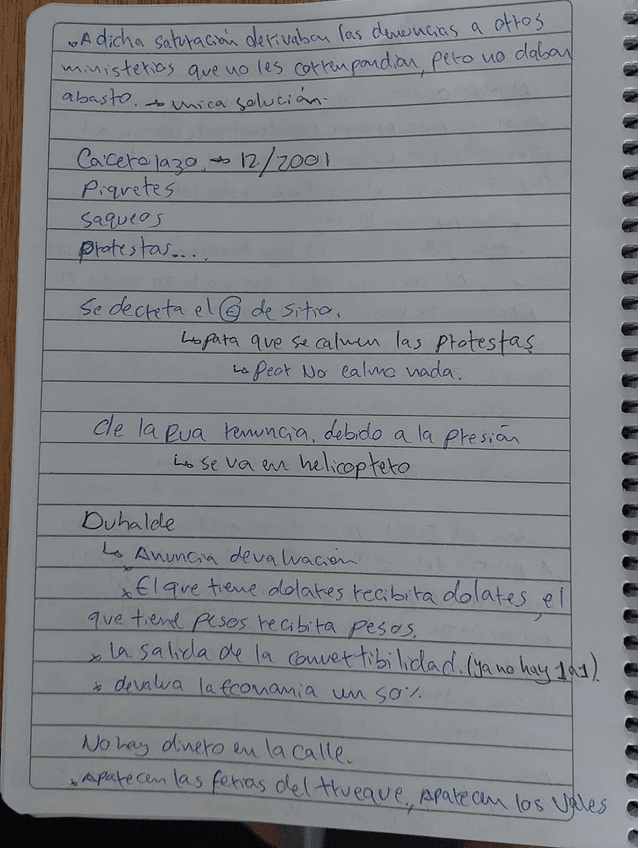 • A dicha saturación derivaban las denuncias a otros
ministerios que no les correspondian, pero no daban
abasto. → unica solución.
Cacerolazo. → 12/2001
Piquetes
saqueos
protestas....
Se decreta el Ⓔ de sitio.
↳ para que se calmen las protestas
↳ Peor No calmo nada.
de la Rua renuncia. debido a la presión
↳ se va en helicoptero
Duhalde
↳ Anuncia devaluación
* El que tiene dolares recibira dolares, el
que tiene pesos recibira pesos.
* La salida de la convertibilidad. (ya no hay 1 a 1)
* devalua la economia un 50%
No hay dinero en la calle.
• Aparecen las ferias del trueque., Aparecen los Vales